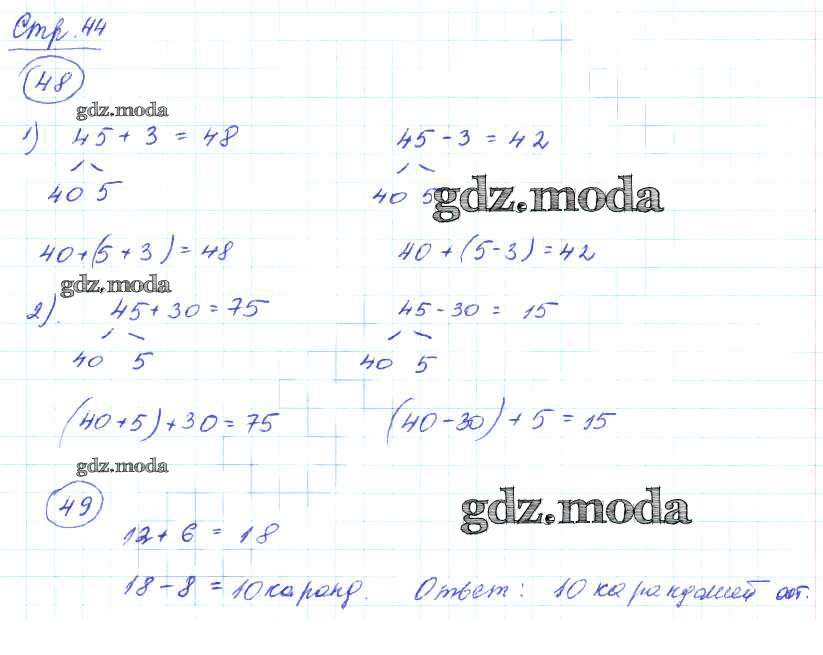 Стр. 44
48
gdz.moda
1) 45 + 3 = 48 45 - 3 = 42
40 5 40 5
gdz.moda
40+(5+3)=48 40+(5-3)=42
gdz.moda
2). 45+30=75 45-30= 15
40 5 40 5
(40+5)+30=75 (40-30)+5=15
gdz.moda
49
gdz.moda
12+6=18
18-8=10 каранд. Ответ: 10 карандашей ост.